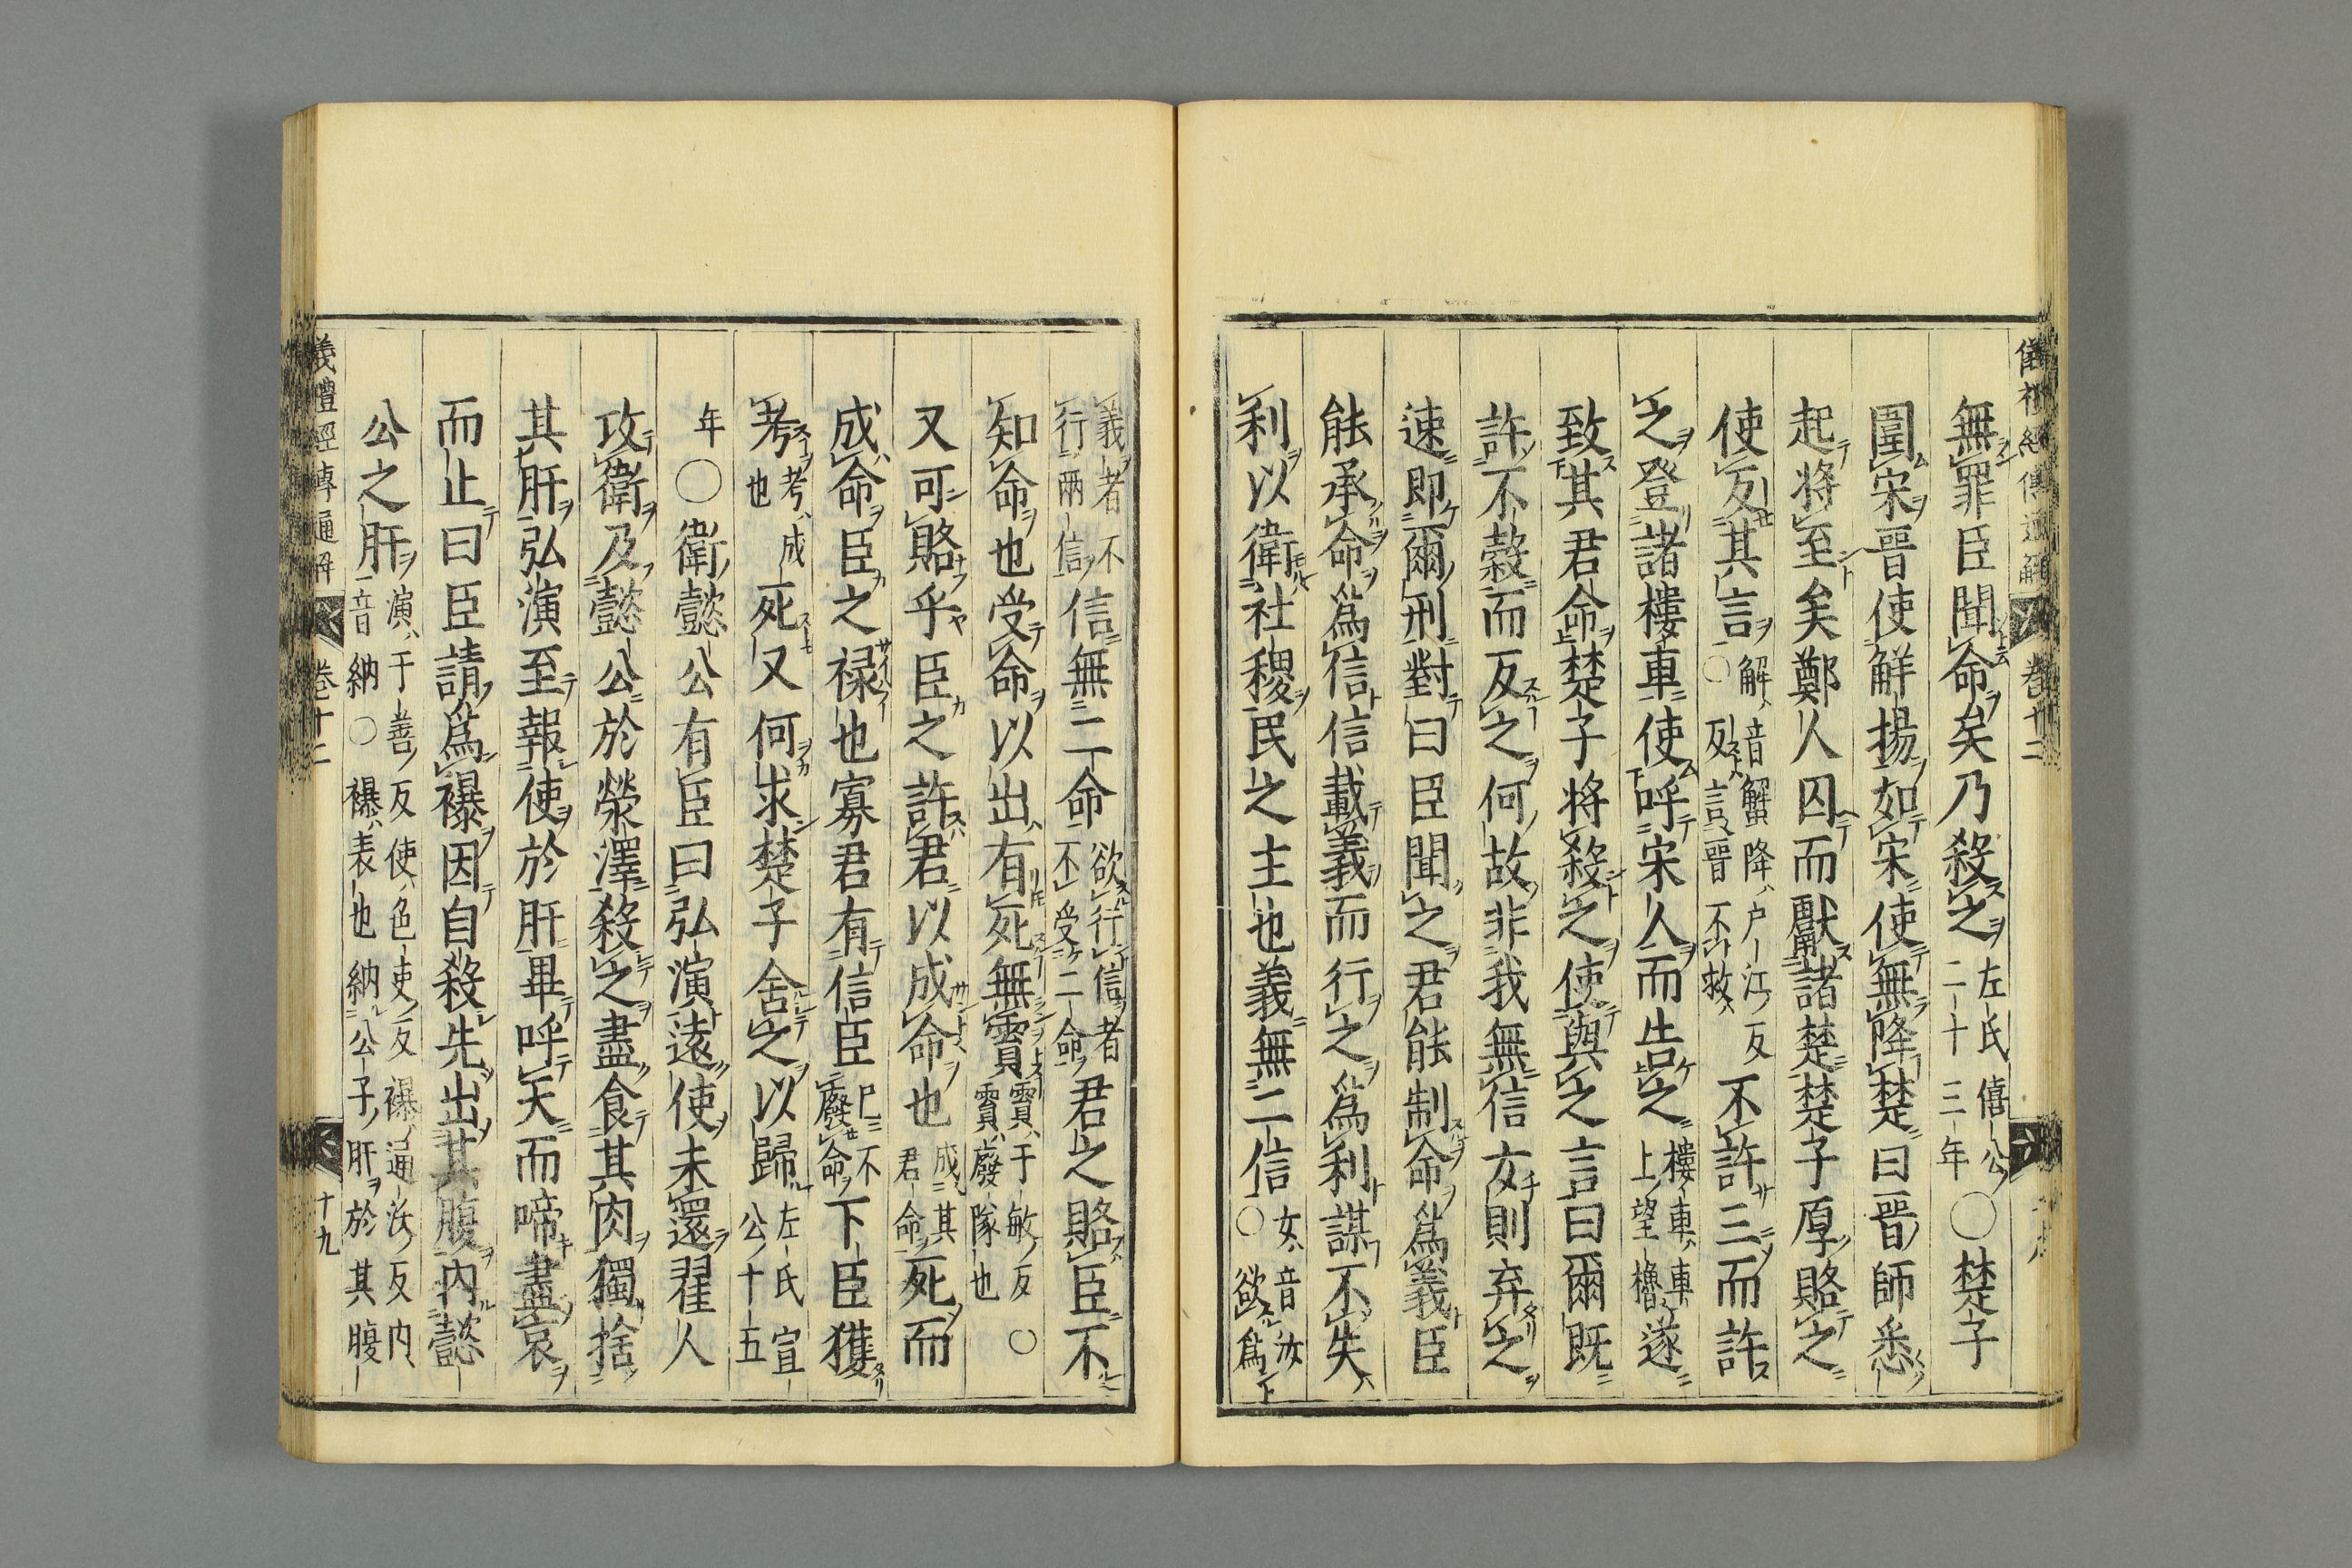 儀禮經傳通解 卷十二
無罪臣聞命矣乃殺之左氏僖公二十三年○楚子
圍宋晉使解揚如宋使無降楚曰晉師悉
起將至矣鄭人囚而獻諸楚楚子厚賂之
使反其言○解音蟹降戶江反反言晉不救不許三而許
之登諸樓車使呼宋人而告之樓車車上望櫓遂
致其君命楚子将殺之使與之言曰爾既
許不穀而反之何故非我無信女則弃之
速即爾刑對曰臣聞之君能制命爲義臣
能承命爲信信載義而行之爲利謀不失
利以衛社稷民之主也義無二信○女音汝欲爲
義者不行兩信信無二命欲行信者不受二命君之賂臣不
知命也受命以出有死無霣霣于敏反霣廢隊也○
又可賂乎臣之許君以成命也成其君命死而
成命臣之禄也寡君有信臣己不廢命下臣獲
考考成也死又何求楚子舍之以歸左氏宣公十五
年○衛懿公有臣曰弘演遠使未還翟人
攻衛及懿公於滎澤殺之盡食其肉獨捨
其肝弘演至報使於肝畢呼天而啼盡哀
而止曰臣請爲襮因自殺先出其腹内懿
公之肝演于善反使色吏反襮通沃反内音納○襮表也納公子肝於其腹
儀禮經傳通解 卷十二 十九